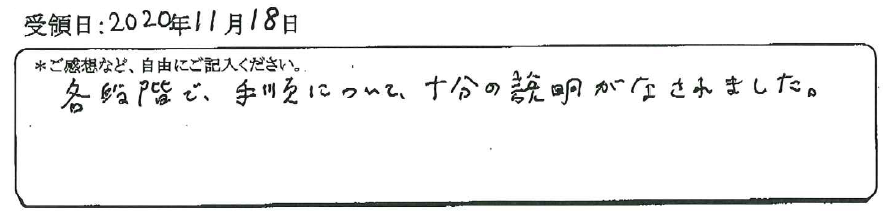 受領日:2020年11月18日
*ご感想など、自由にご記入ください。
各段階で、手順について、十分の説明がなされました。